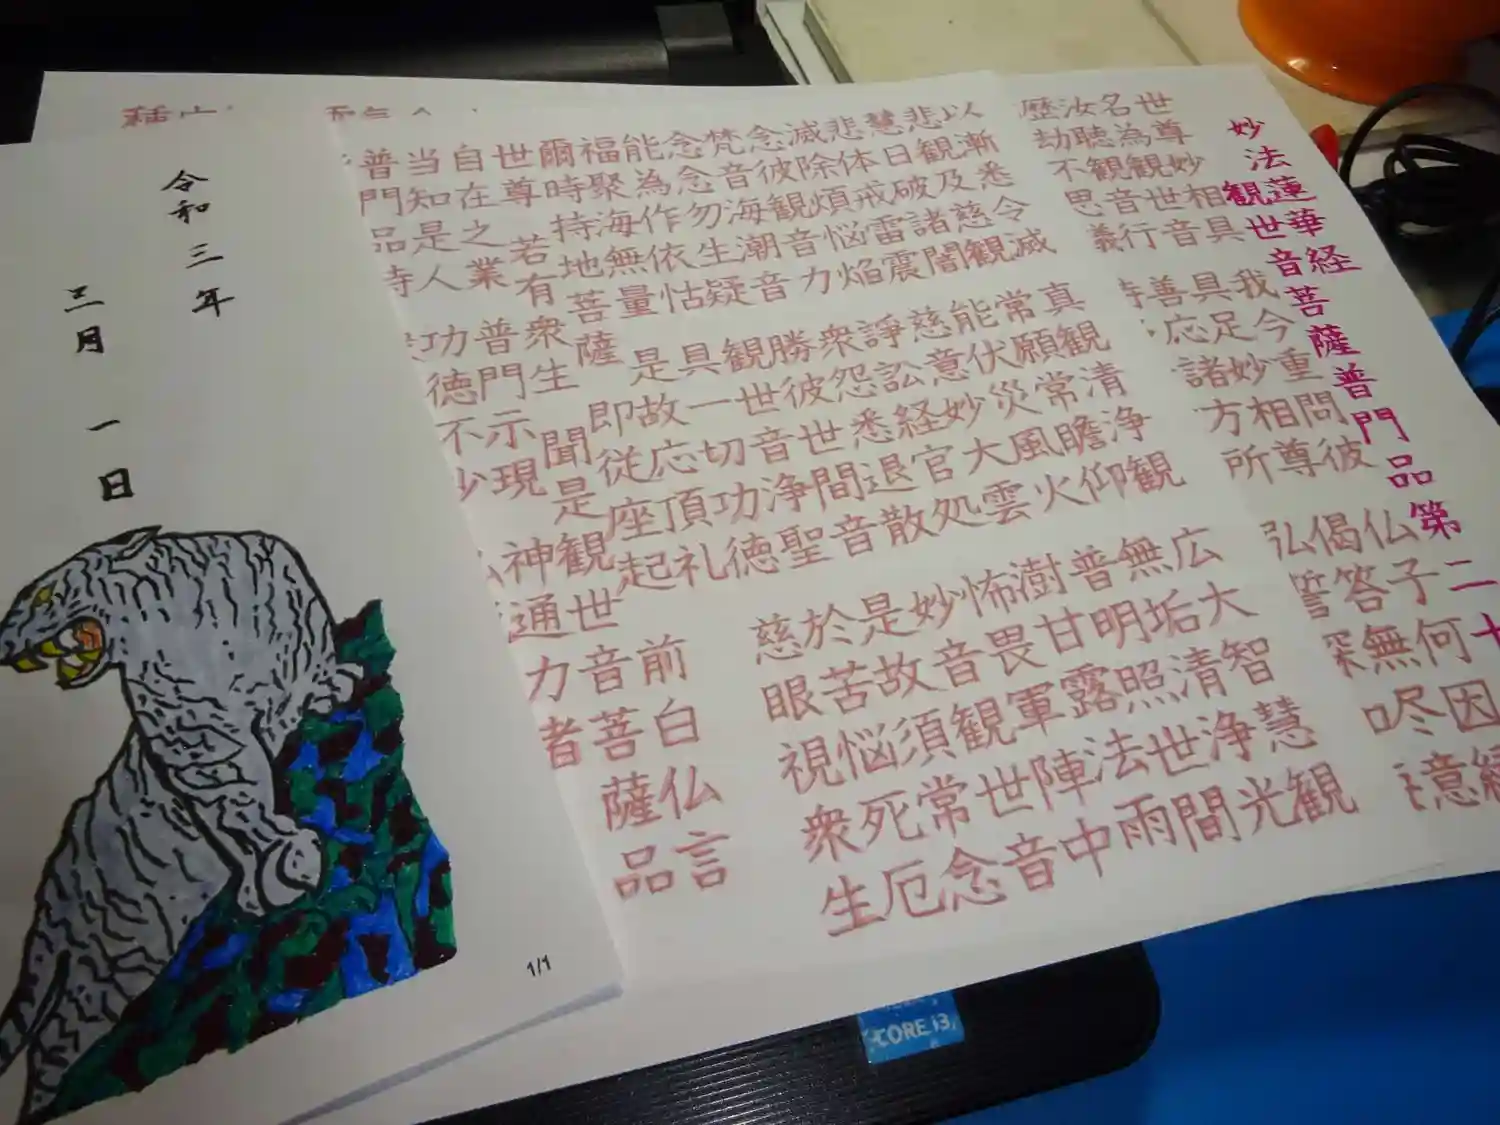 妙法蓮華経
観世音菩薩普門品第二十
世尊妙相具 我今重問彼 仏子何因縁
名為観世音 具足妙相尊 偈答無尽意
汝聴観音行 善応諸方所 弘誓深
歴劫不思義
以漸悉令滅 真観清浄観 広大智慧観
悲観及慈観 常願常瞻仰 無垢清浄光
慧日破諸闇 能伏災風火 普明照世間
悲体戒雷震 慈意妙大雲 澍甘露法雨
滅除煩悩焔 諍訟経官処 怖畏軍陣中
念彼観音力 衆怨悉退散 妙音観世音
梵音海潮音 勝彼世間音 是故須常念
念念勿生疑 観世音浄聖 於苦悩死厄
能為作依怙 具一切功徳 慈眼視衆生
福聚海無量 是故応頂礼
爾時持地菩薩 即従座起 前白仏言
世尊若有衆生 聞是観世音菩薩品
自在之業 普門示現 神通力者
当知是人 功徳不少
普門品時
令和三年
三月 一日
1/1
CORE i3